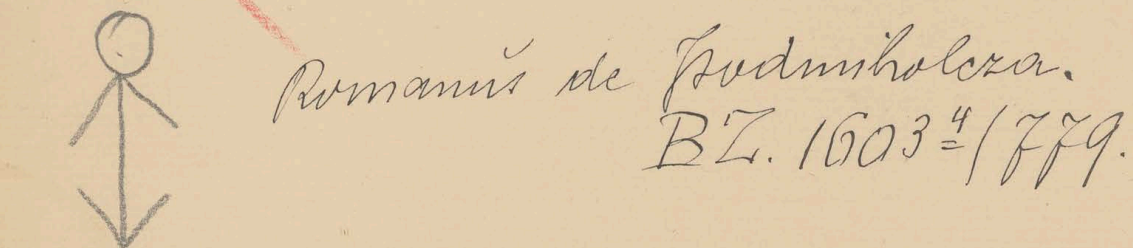 Romanus de Podmiholcza.
BZ. 1603 4/779.